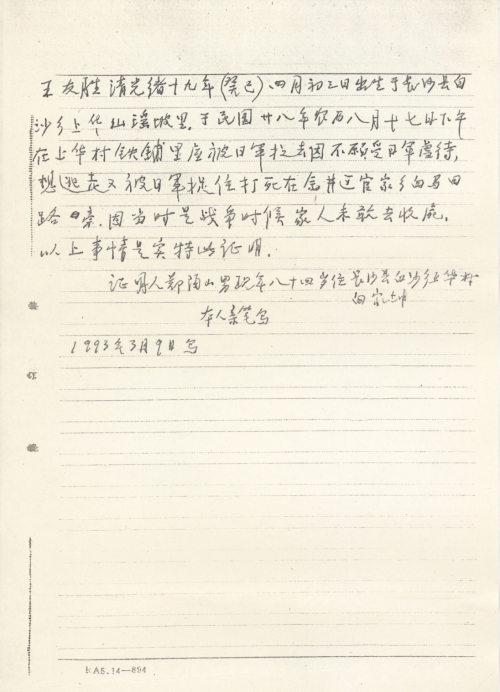 王友胜清光绪十九年(癸巳)、四月初三日出生于长沙县白
沙乡上华山瑶坡里。于民国廿八年农历八月十七日下午
在上华村铁铺里屋被日军拉去因不愿受日军虐待,
想逃走又被日军捉住打死在金井迁官家乡白马田
路口旁。因当时是战争时候家人未敢去收尸。
以上事情是实特此证明。
证明人郑 山男现年八十四岁位长沙县白沙乡上华村
本人亲笔写
1993年3月9日写
装
订
线
NAS.14—894